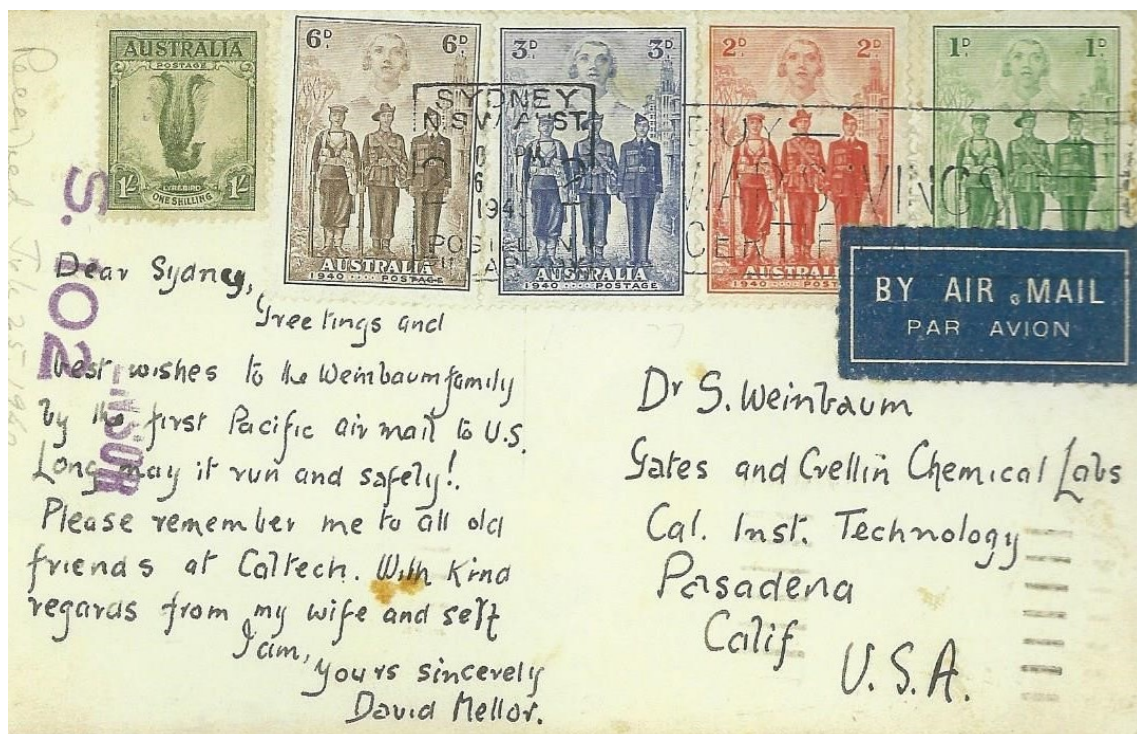 AUSTRALIA
POSTAGE
1/- 1/-
LYREBIRD
ONE SHILLING
6D. 6D.
AUSTRALIA
1940 POSTAGE
3D. 3D.
AUSTRALIA
1940 POSTAGE
2D. 2D.
AUSTRALIA
1940 POST
1D. 1D.
SYDNEY
N.S.W. AUST.
194
BUY
WAR SAVINGS
CERTIF
BY AIR MAIL
PAR AVION
S. 102
Received July 25 1940
Dear Sydney,
Greetings and
best wishes to the Weinbaum family
by the first Pacific air mail to U.S.
Long may it run and safely!
Please remember me to all old
friends at Caltech. With Kind
regards from my wife and self
I am,
yours sincerely
David Mellor.
Dr S. Weinbaum
Gates and Crellin Chemical Labs
Cal. Inst. Technology
Pasadena
Calif
U.S.A.